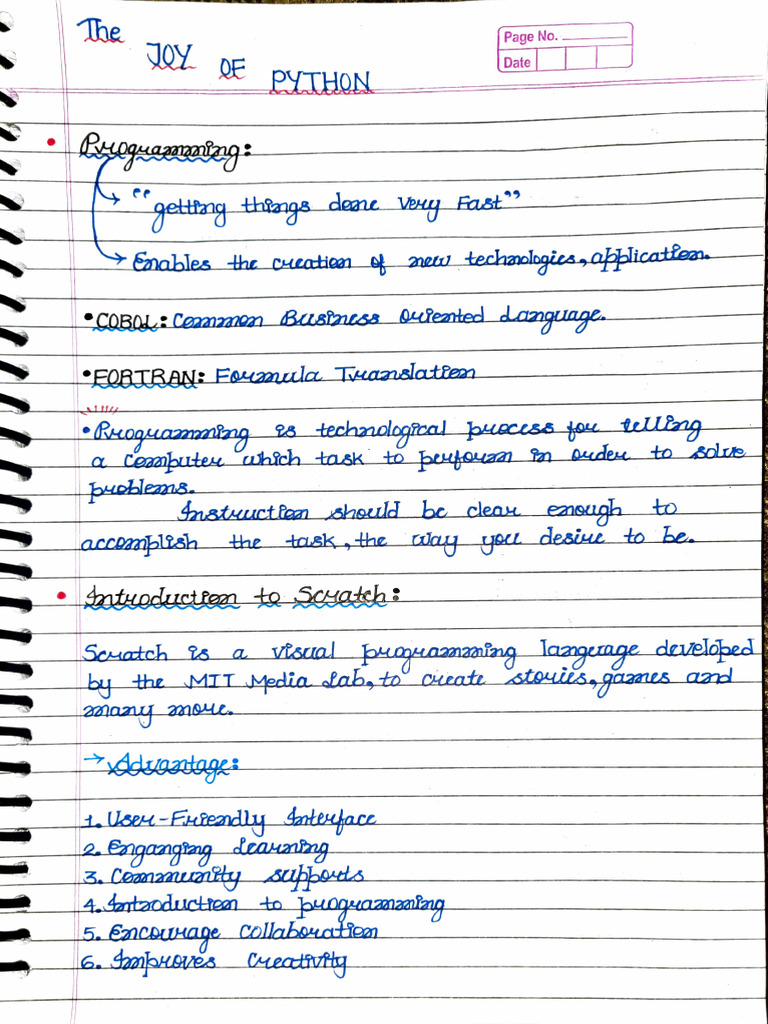 The JOY OF PYTHON
Page No.
Date
• Programming:
→ "getting things done Very Fast"
→ Enables the creation of new technologies, application.
• COBOL: Common Business Oriented Language.
• FORTRAN: Formula Translation
• Programming is technological process for telling
a computer which task to perform in order to solve
problems.
Instruction should be clear enough to
accomplish the task, the way you desire to be.
• Introduction to Scratch:
Scratch is a visual programming language developed
by the MIT Media Lab, to create stories, games and
many more.
→ Advantage:
1. User-Friendly Interface
2. Enganging Learning
3. Community supports
4. Introduction to programming
5. Encourage Collaboration
6. Improves Creativity